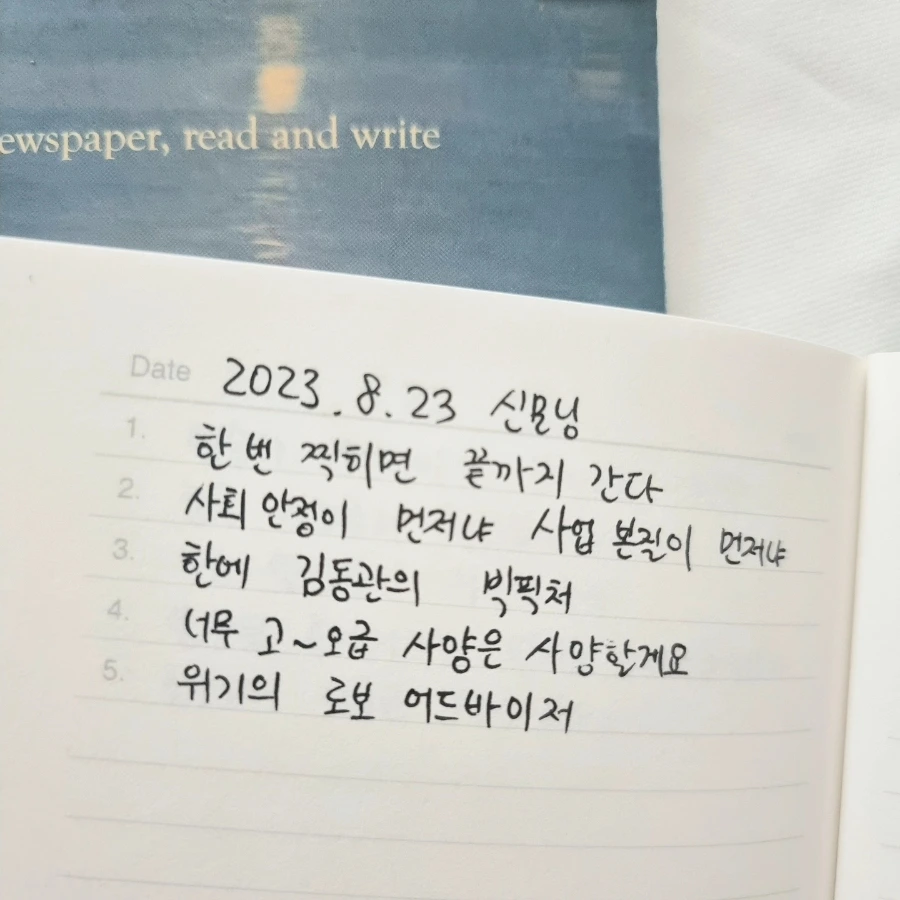 ewspaper, read and write
Date 2023.8.23 신문닝
1. 한 번 찍히면 끝까지 간다
2. 사회 안정이 먼저냐 사업 본질이 먼저냐
3. 한에 김동관의 빅픽처
4. 너무 고~오급 사양은 사양할게요
5. 위기의 로보 어드바이저